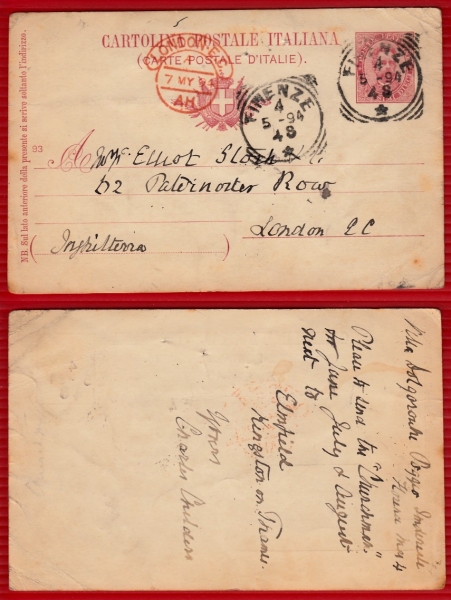 CARTOLINA POSTALE ITALIANA
(CARTE POSTALE D'ITALIE)
NB. Sul lato anteriore della presente si scrive soltanto l'indirizzo.
93
LONDON E.C.
7 MY 94
AH
FIRENZE
4
5 -94
4 S
FIRENZE
4
5 -94
4 S
A
Elliot Stock
62 Paternoster Row
London EC
(Inghilterra
Villa Dolgorouki Poggio Imperiale
May 4
Please to send the "Churchman"
for June July & August
next to
Elmfield
Kingston on Thames
Yours
Charles Childers